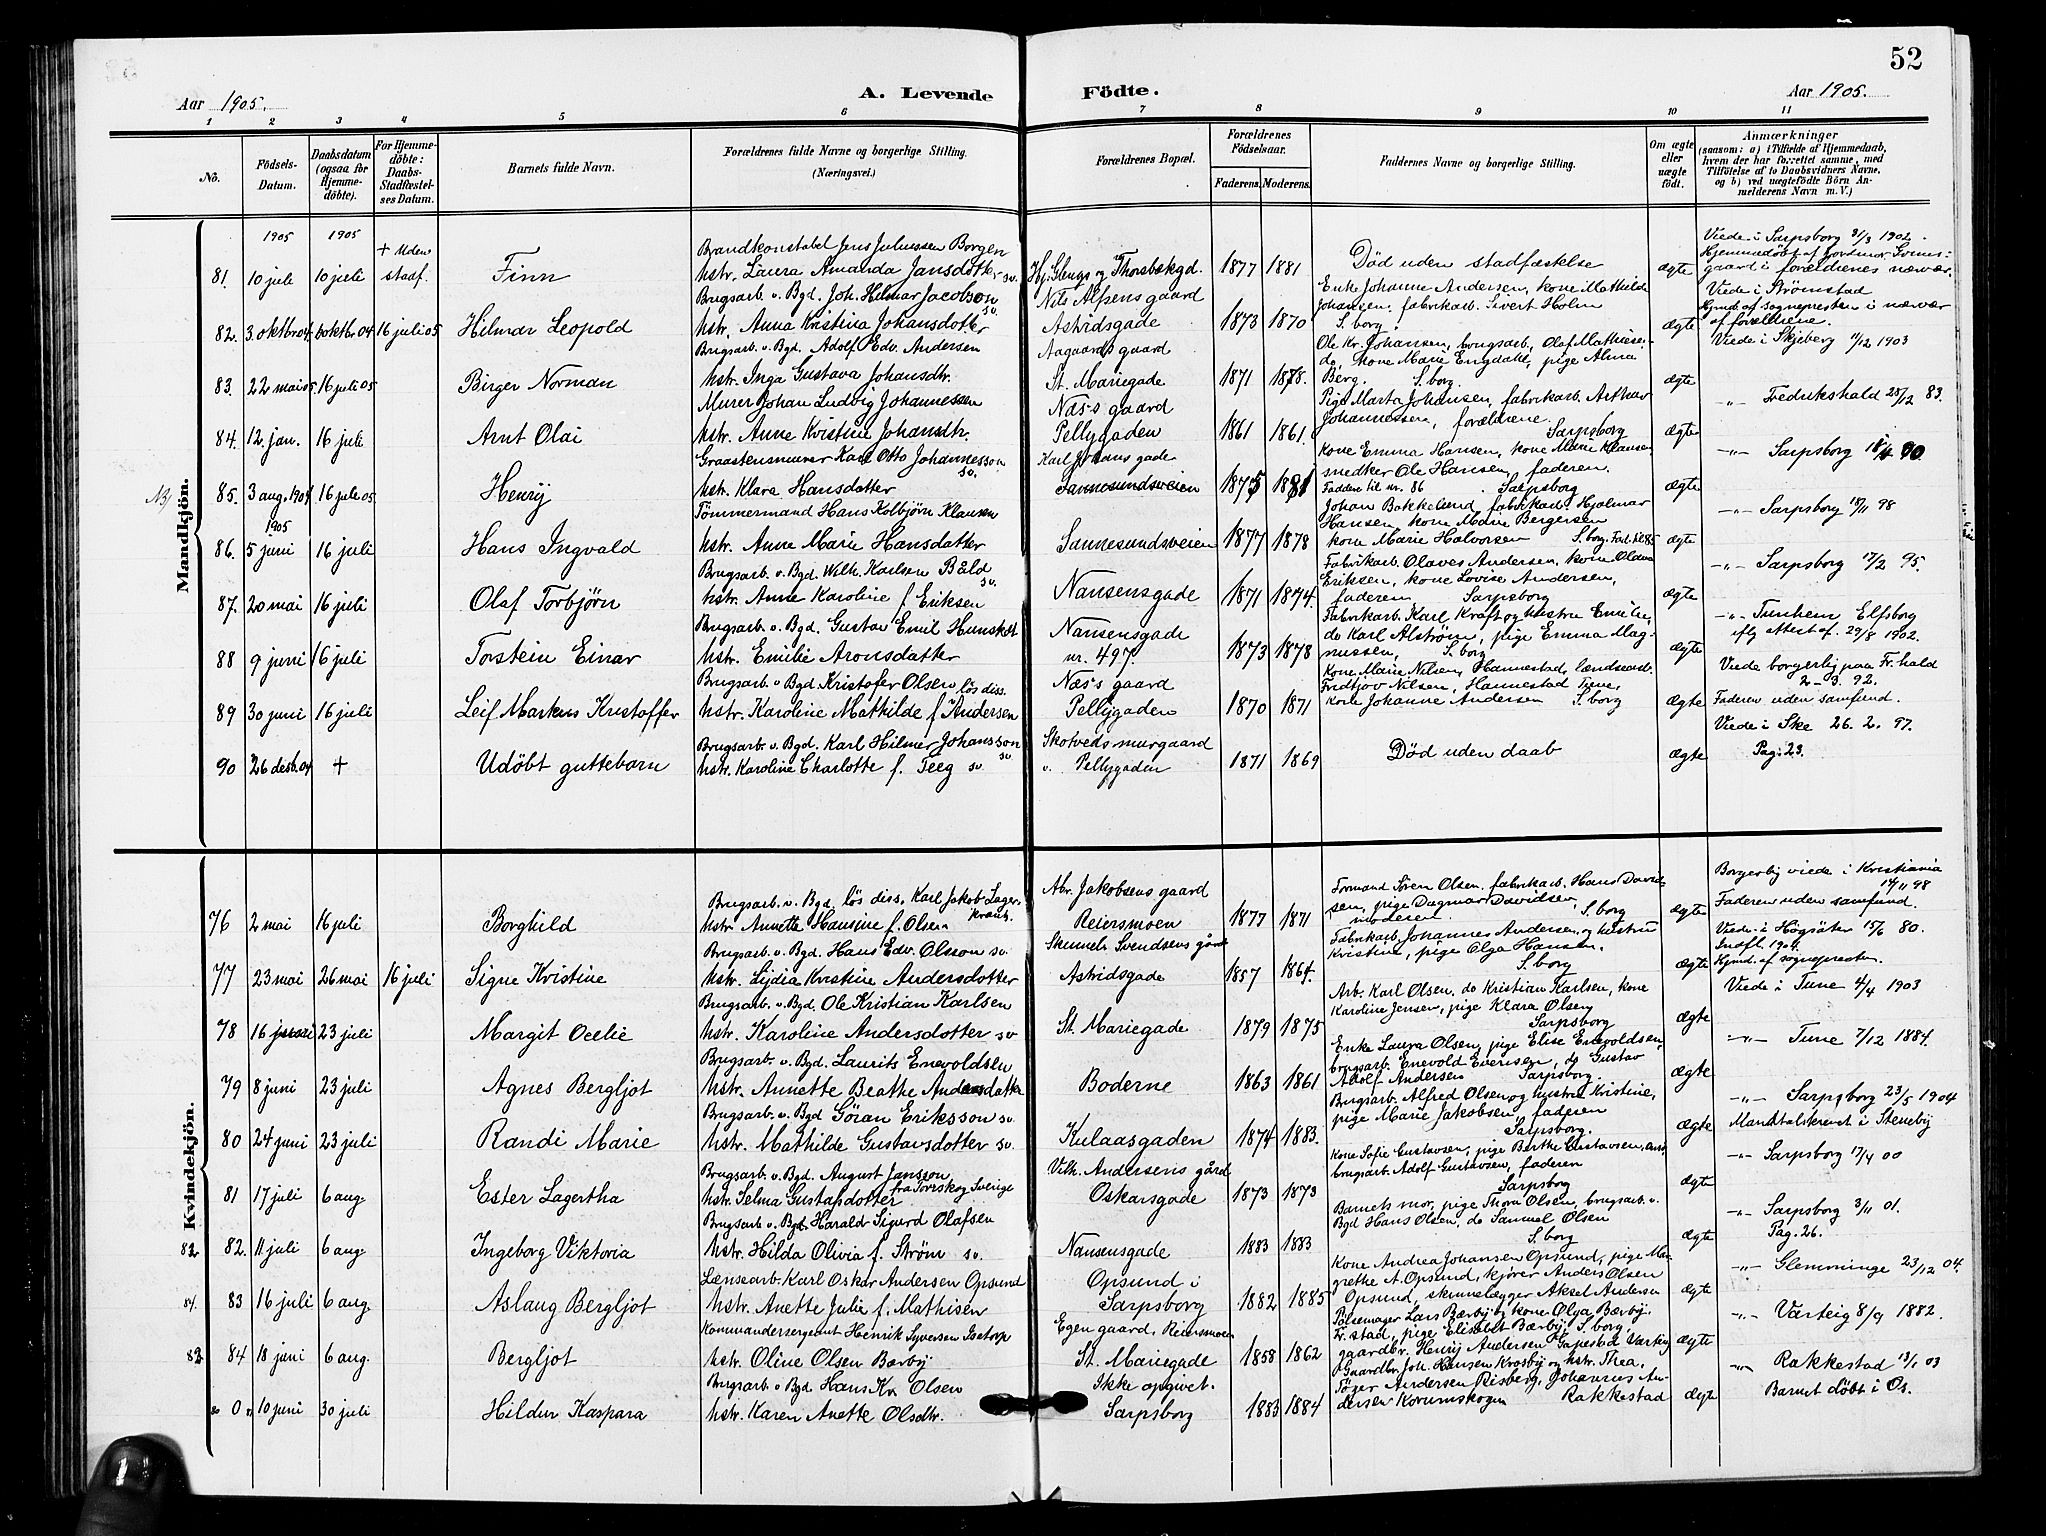 52
Aar 1905.
A. Levende Födte.
Aar 1905.
1 2 3 4 5 6 7 8 9 10 11
No.
Födsels-Datum.
Daabsdatum (ogsaa for Hjemme-döbte).
For Hjemme-döbte: Daabs-Stadfæstel-ses Datum.
Barnets fulde Navn.
Forældrenes fulde Navne og borgerlige Stilling.
(Næringsvei.)
Forældrenes Bopæl.
Forældrenes Födselsaar.
Faderens. Moderens.
Faddernes Navne og borgerlige Stilling.
Om ægte eller uægte födt.
Anmærkninger
(saasom: a) i Tilfælde af Hjemmedaab,
hvem der har forrettet samme, med
Tilföielse af to Daabsvidners Navne,
og b) ved uægtefödte Börn An-
melderens Navn m. V.)
Mandkjön.
1905 1905 + Uden
81. 10 juli 10 juli stadf. Finn
Brandkonstabel Jens Juliussen Borgen
hstr. Laura Amanda Jansdotter sv.
Hj. Glengs og Thorsbækgd. 1877 1881
Død uden stadfæstelse
ægte
Viede i Sarpsborg 31/3 1902.
Hjemmedöbt af jordmor
gaard i forældrenes nærvær.
82. 3 oktbr 04 6 oktbr 04 16 juli 05 Hilmar Leopold
Brugsarb. v. Bgd. Joh. Hilmar Jacobson sv.
hstr. Anna Kristina Johansdotter
Nils Alfsens gaard
Astridsgade 1873 1870
Enke Johanne Andersen, kone Mathilde
Johansen, fabrikarb. Sivert Holm
S. borg
ægte
Viede i Strømstad
Hjmd. af sognepresten i nærvær
af forældrene.
83. 22 mai 05 16 juli 05 Birger Norman
Brugsarb. v. Bgd. Adolf Edv. Andersen
hstr. Inga Gustava Johansdtr.
Aagaards gaard
St. Mariegade 1871 1878.
Ole Kr. Johansen, brugsarb. Olaf Mathiesen,
do, kone Marie Engdahl, pige Alma
Berg. S. borg.
ægte
Viede i Skjeberg 11/12 1903
84. 12. jan. 16 juli Arnt Olai
Murer Johan Ludvig Johannessen
hstr. Anne Kristine Johansdtr.
Næss gaard
Pellygaden 1861 1861.
Pige Marta Johansen, fabrikarb. Arthur
Johannessen, forældrene.
Sarpsborg
ægte
-"- Fredrikshald 25/12 83.
NB 85. 3 aug. 1904 16 juli 05 Henrij
Graastensmurer Karl Otto Johannesson sv.
hstr. Klara Hansdatter
Karl Johans gade
Sannesundsveien 1875 1881
Kone Emma Hansen, kone Marie Klausen
snedker Ole Hansen, faderen.
Faddere til nr. 86 Sarpsborg
ægte
-"- Sarpsborg 90
1905
86. 5 juni 16 juli Hans Ingvald
Tömmermand Hans Kolbjørn Klausen
hstr. Anne Marie Hansdatter
Sannesundsveien 1877 1878
Johan Bakkelund, fabrikarb. Hjalmar
Hansen, kone Marie Bergersen
kone Marie Halvorsen S. borg. Fad. til 85
ægte
-"- Sarpsborg 18/11 98
87. 20 mai 16 juli Olaf Torbjörn
Brugsarb. v. Bgd. Wilh. Karlsen Båld sv.
hstr. Anne Karoline f. Eriksen
Nansensgade 1871 1874.
Fabrikarb. Olaves Andersen, kone Olava
Eriksen, kone Lovise Andersen,
faderen Sarpsborg
ægte
-"- Sarpsborg 17/2 95.
88 9 juni 16 juli Torstein Einar
Brugsarb. v. Bgd. Gustav Emil Hunskot
hstr. Emilie Aronsdatter
Nansensgade
nr. 497. 1873 1878
Fabrikarb. Karl Kraft og hustru Emilie,
do Karl Alström, pige Emma Mag-
nussen, S. borg
ægte
-"- Tunhem Elfsborg
iflg attest af 29/8 1902.
89 30 juni 16 juli Leif Markus Kristoffer
Brugsarb. v. Bgd. Kristofer Olsen lös diss.
hstr. Karoline Mathilde f. Andersen
Næss gaard
Pellygaden 1870 1871
Kone Marie Nilsen, Hannestad, lændsearb.
Fridtjov Nilsen, Hannestad Tune,
Kone Johanne Andersen S. borg
ægte
Viede borgerlig paa Fr.hald
2-3. 92.
Faderen uden samfund.
90 26 desb. 04 + Udöbt guttebarn
Brugsarb. v. Bgd. Karl Hilmer Johansson sv
hstr. Karoline Charlotte f. Teeg sv.
Skotveds murgaard
v. Pellygaden 1871 1869
Død uden daab
ægte
Viede i Ske 26. 2. 97.
Pag. 23.
Kvindekjön.
76 2 mai 16 juli Borghild
Brugsarb. v. Bgd. lös diss. Karl Jakob Lager-
krants.
hstr Annette Hansine f. Olsen
Abr. Jakobsens gaard
Reiersmoen 1877 1871
Formand Sören Olsen. fabrikarb. Hans David-
sen, pige Dagmar Davidsen,
moderen. S. borg
ægte
Borgerlig viede i Kristiania
14/11 98
Faderen uden samfund.
77 23 mai 26 mai 16 juli Signe Kristine
Brugsarb. v. Bgd. Hans Edv. Olsson sv.
hstr. Lydia Kristine Andersdotter
Skinnels Svendsens gård
Astridsgade 1857 1864.
Fabrikarb. Johannes Andersen og hustru
Kristine, pige Olga Hansen.
S. borg
ægte
Viede i Högsäter 15/6 80.
Indfl. 1904.
Hjmd. af sognepresten.
78 16 juni 23 juli Margit Ocelie
Brugsarb. v. Bgd. Ole Kristian Karlsen
hstr. Karoline Andersdotter sv
St. Mariegade 1879 1875
Arb. Karl Olsen. do Kristian Karlsen, kone
Karoline Jensen, pige Klara Olsen
Sarpsborg
ægte
Viede i Tune 4/4 1903
79 8 juni 23 juli Agnes Bergljot
Brugsarb. v. Bgd. Laurits Enevoldsen
hstr. Annette Beathe Andersdatter
Boderne 1863 1861
Enke Laura Olsen, pige Elise Enevoldsen,
brugsarb. Enevold Evensen, do Gustav
Adolf Andersen Sarpsborg.
ægte
-"- Tune 7/12 1884.
80 24 juni 23 juli Randi Marie
Brugsarb. v. Bgd Göran Eriksson sv.
hstr. Mathilde Gustavsdotter sv.
Kulaasgaden 1874 1883.
Brugsarb. Alfred Olsen og hustru Kristine,
pige Marie Jakobsen, faderen
Sarpsborg.
ægte
-"- Sarpsborg 23/5 1904
Mandtalskrevet i Steneby
81 17 juli 6 aug. Ester Lagertha
Brugsarb. v. Bgd. August Jansson
fra Torrskog Sverige
hstr. Selma Gustafsdotter
Vilh. Andersens gård
Oskarsgade 1873 1873
Kone Sofie Gustavsen, pige Berthe Gustavsen,
brugsarb. Adolf Gustavsen, faderen
Sarpsborg
ægte
-"- Sarpsborg 17/4 00
82 82. 11 juli 6 aug. Ingeborg Viktoria
Brugsarb v. Bgd. Harald Sigurd Olafsen
hstr. Hilda Olivia f. Ström sv.
Nansensgade 1883 1883
Barnets mor, pige Thora Olsen, brugsarb. v.
Bgd Hans Olsen, do Samuel Olsen
S. borg
ægte
-"- Sarpsborg 3/11 01.
Pag. 26.
84. 83 16 juli 6 aug. Aslaug Bergljot
Lænsearb. Karl Oskar Andersen Opsund
hstr. Anette Julie f. Mathisen
Opsund i
Sarpsborg 1882 1885
Kone Andrea Johansen Opsund, pige Mar-
grethe A. Opsund, kjører Anders Olsen
Opsund, skinnelægger Aksel Andersen
ægte
-"- Glemminge 23/12 04.
83 84 18 juni 6 aug. Bergljot
Kommandersergeant Henrik Syversen Isetorp
hstr. Oline Olsen Bærby
Egen gaard. Reiersmoen
St. Mariegade 1858 1862
Pølsemager Lars Bærby og kone Olga Bærby.
Fr.stad, pige Elisabet Bærby, S. borg.
gaardbr. Henrij Andersen Gapestad Varteig
ægte
-"- Varteig 8/9 1882.
0 10 juni 30 juli Hildur Kaspara
Brugsarb. v. Bgd. Hans Kr. Olsen
hstr. Karen Anette Olsdtr.
Ikke opgivet.
Sarpsborg 1883 1884
Gaardbr. Joh. Hansen Krosby og hstr. Thea,
Andersen Risberg, Johannes An-
dersen Korumskogen Rakkestad
ægte
-"- Rakkestad 13/1 03
Barnet döbt i Os.